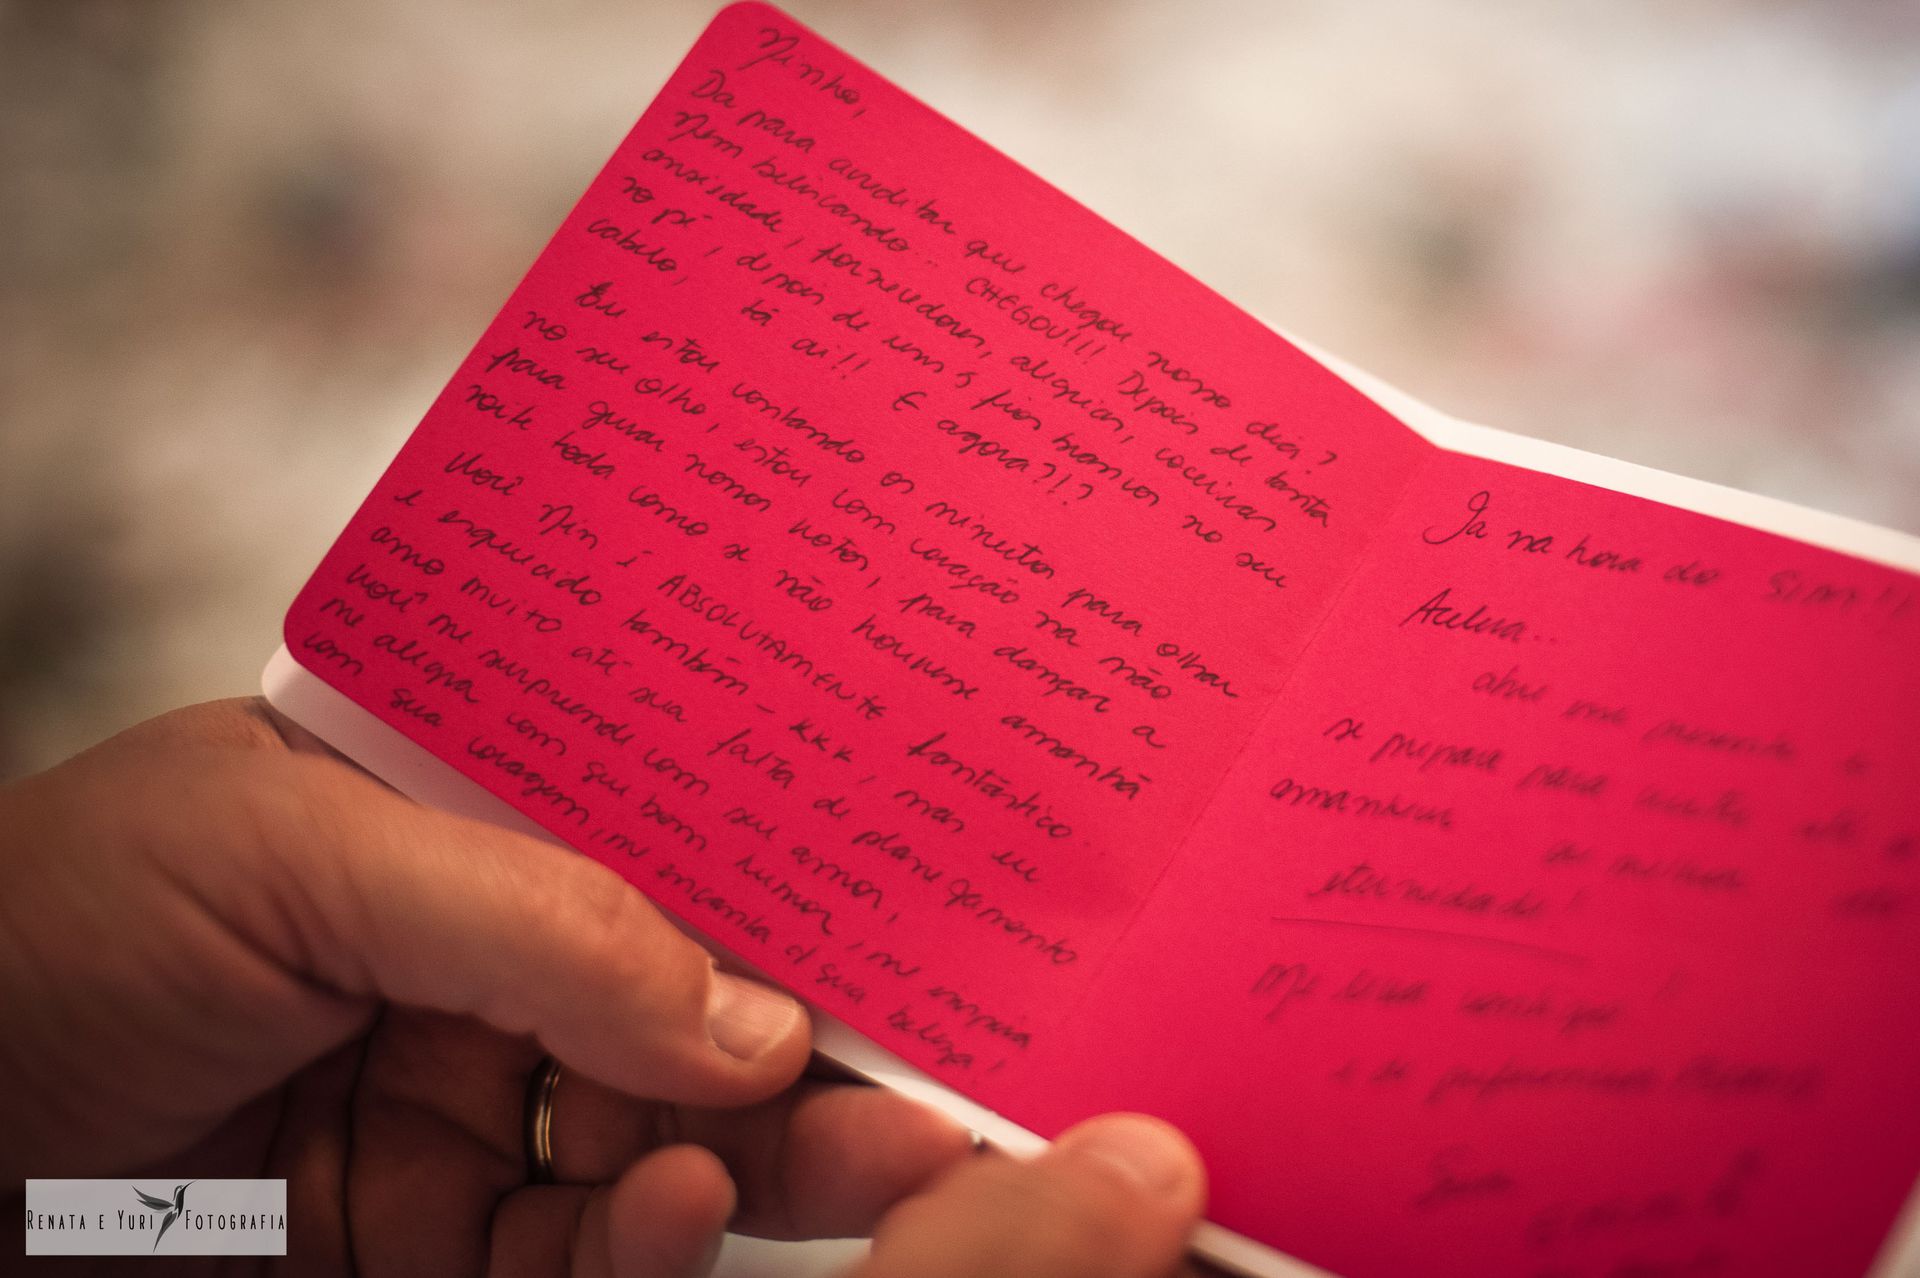 Ninho,
Da para acreditar que chegou nosso dia?
Nem belincando... CHEGOU!!! Depois de tanta
ansiedade, fornecedores, alegrias, coceiras
no pé, depois de uns 5 fios brancos no seu
cabelo, tá ai!! E agora?!?
Eu estou contando os minutos para olhar
no seu olho, estou com coração na mão
para jurar nossos votos, para dançar a
noite toda como se não houvesse amanhã
Você Nin é ABSOLUTAMENTE fantástico...
e esquecido também - kkk, mas eu
amo muito até sua falta de planejamento
você me surpreende com seu amor,
me alegra com seu bom humor, me inspira
com sua coragem, me encanta c/ sua beleza!
Ja na hora do SIM!!
Acelera..
abre
se prepara para
amanhecer
eternidade!
Me leva contigo!
RENATA E YURI FOTOGRAFIA